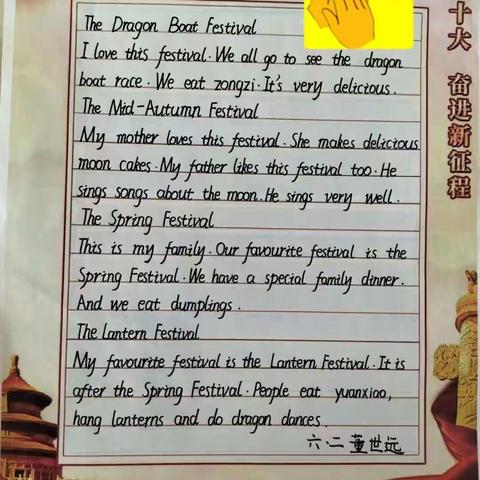 The Dragon Boat Festival
I love this festival. We all go to see the dragon
boat race. We eat zongzi. It's very delicious.
The Mid-Autumn Festival
My mother loves this festival. She makes delicious
moon cakes. My father likes this festival too. He
sings songs about the moon. He sings very well.
The Spring Festival
This is my family. Our favourite festival is the
Spring Festival. We have a special family dinner.
And we eat dumplings.
The Lantern Festival
My favourite festival is the Lantern Festival. It is
after the Spring Festival. People eat yuanxiao,
hang lanterns and do dragon dances.
六.二 董世远
十大 奋进新征程